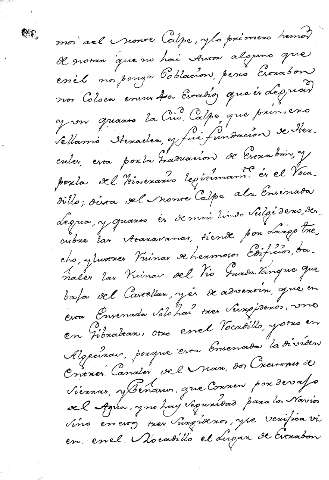 mos del Monte Calpe, y lo primero hemos
de notar que no hai Autor alguno que
en él nos ponga Poblacion, pero Estrabon
nos Coloca en
y un quarto la Ciu. Calpe que primero
se llamó Heraclea, y fué fundacion de Her-
cules, esta por la traduccion de Estrabon, y
por la del Itinerario es el Roca-
dillo; dista del Monte Calpe a la Ensenada
Legua, y quarto es de mui lindo Surgidero, des-
cubre las Atarazanas, tiende por Largo tre-
cho, y Ruinas de hermosos Edificios,
las Ruinas del Rio Guadarranque que
baja del Castellar, y es de advertir que en
esta Ensenada Solo hai tres Surgideros, uno
en Gibraltar, otro en el Rocadillo, y otro en
Algeciras, porque esta Ensenada la dividen
entre si Canales del Mar, dos Creciones de
Sierras, y Peñascos, que Corren por debajo
del Agua, y no hay Seguridad para los Navios
Sino en estos tres Surgideros, que verifica vi
en. en el Rocadillo el Lugar de Estrabon